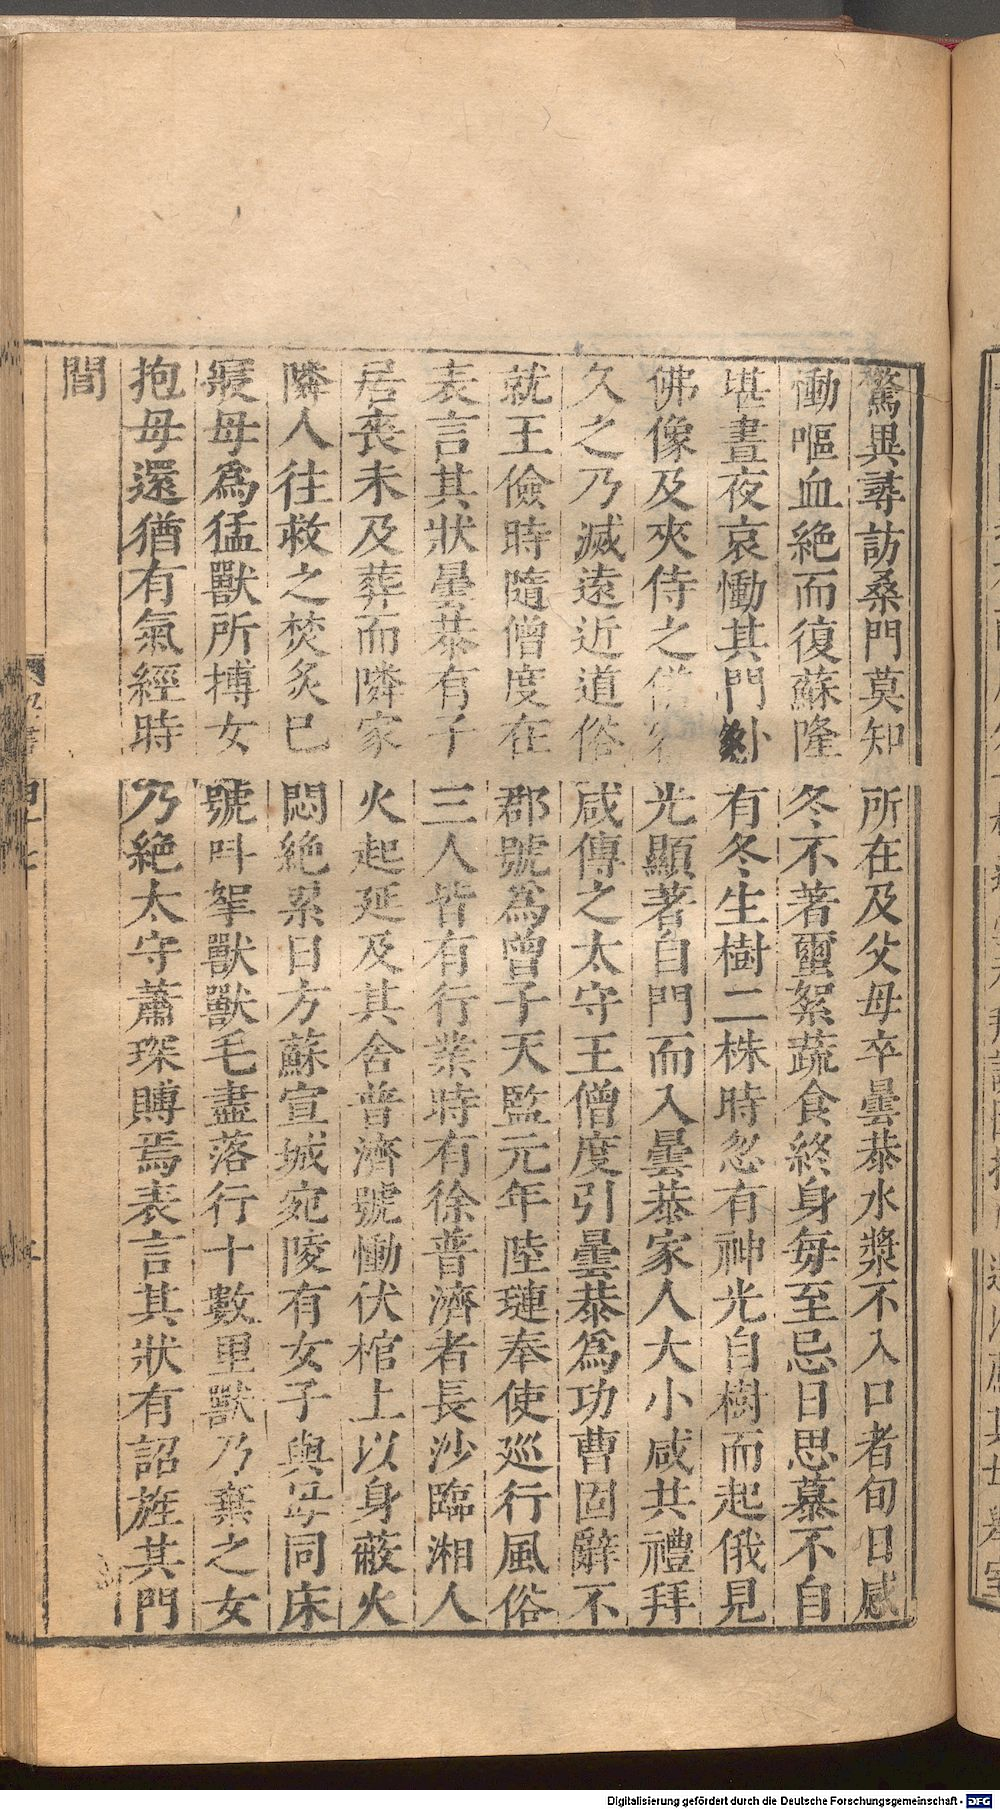 驚異尋訪桑門莫知所在及父母卒曇恭水漿不入口者旬日感
慟嘔血絶而復蘇隆冬不著璽絮蔬食終身毎至忌日思慕不自
堪晝夜哀慟其門外有冬生樹二株時忽有神光自樹而起俄見
佛像及夾侍之儀容光顯著自門而入曇恭家人大小咸共禮拜
久之乃滅遠近道俗咸傳之太守王僧虔引曇恭爲功曹固辭不
就王儉時隨僧虔在郡號爲曾子天監元年陸璉奉使廵行風俗
表言其狀曇恭有子三人皆有行業時有徐普濟者長沙臨湘人
居喪未及葬而隣家火起延及其舍普濟號慟伏棺上以身蔽火
隣人往救之焚炙已悶絶累日方蘇宣城宛陵有女子與母同床
寢母爲猛獸所搏女號叫挐獸獸毛盡落行十數里獸乃棄之女
抱母還猶有氣經時乃絶太守蕭琛賻焉表言其狀有詔旌其門
閭
Digitalisierung gefördert durch die Deutsche Forschungsgemeinschaft - DFG